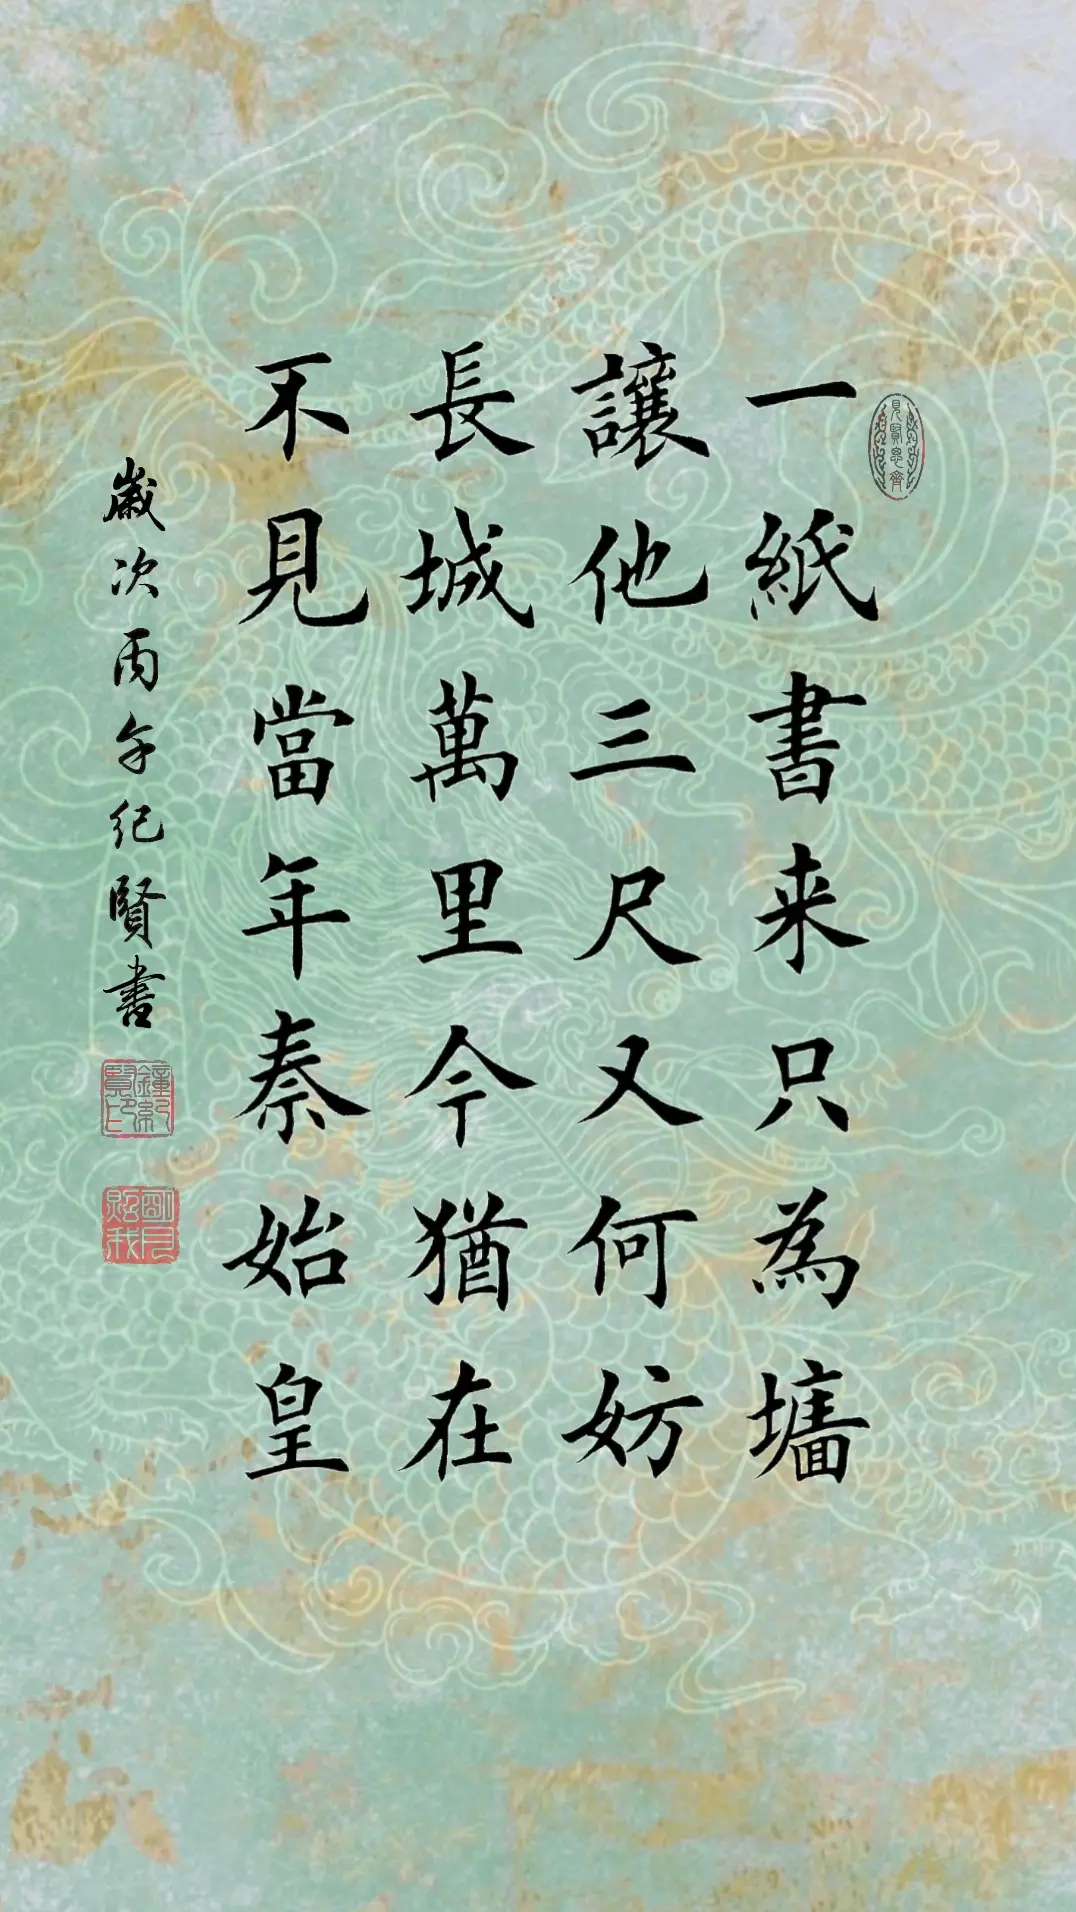 一紙書来只為墻
讓他三尺又何妨
長城萬里今猶在
不見當年秦始皇
歲次丙午紀賢書
見賢思齊
鐘紀賢印